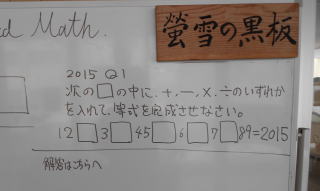 ed Math.
螢雪の黒板
2015 Q1
次の□の中に、+,−,×,÷のいずれか
を入れて、等式を完成させなさい。
12□3□45□6□7□89=2015
解答はこちらへ